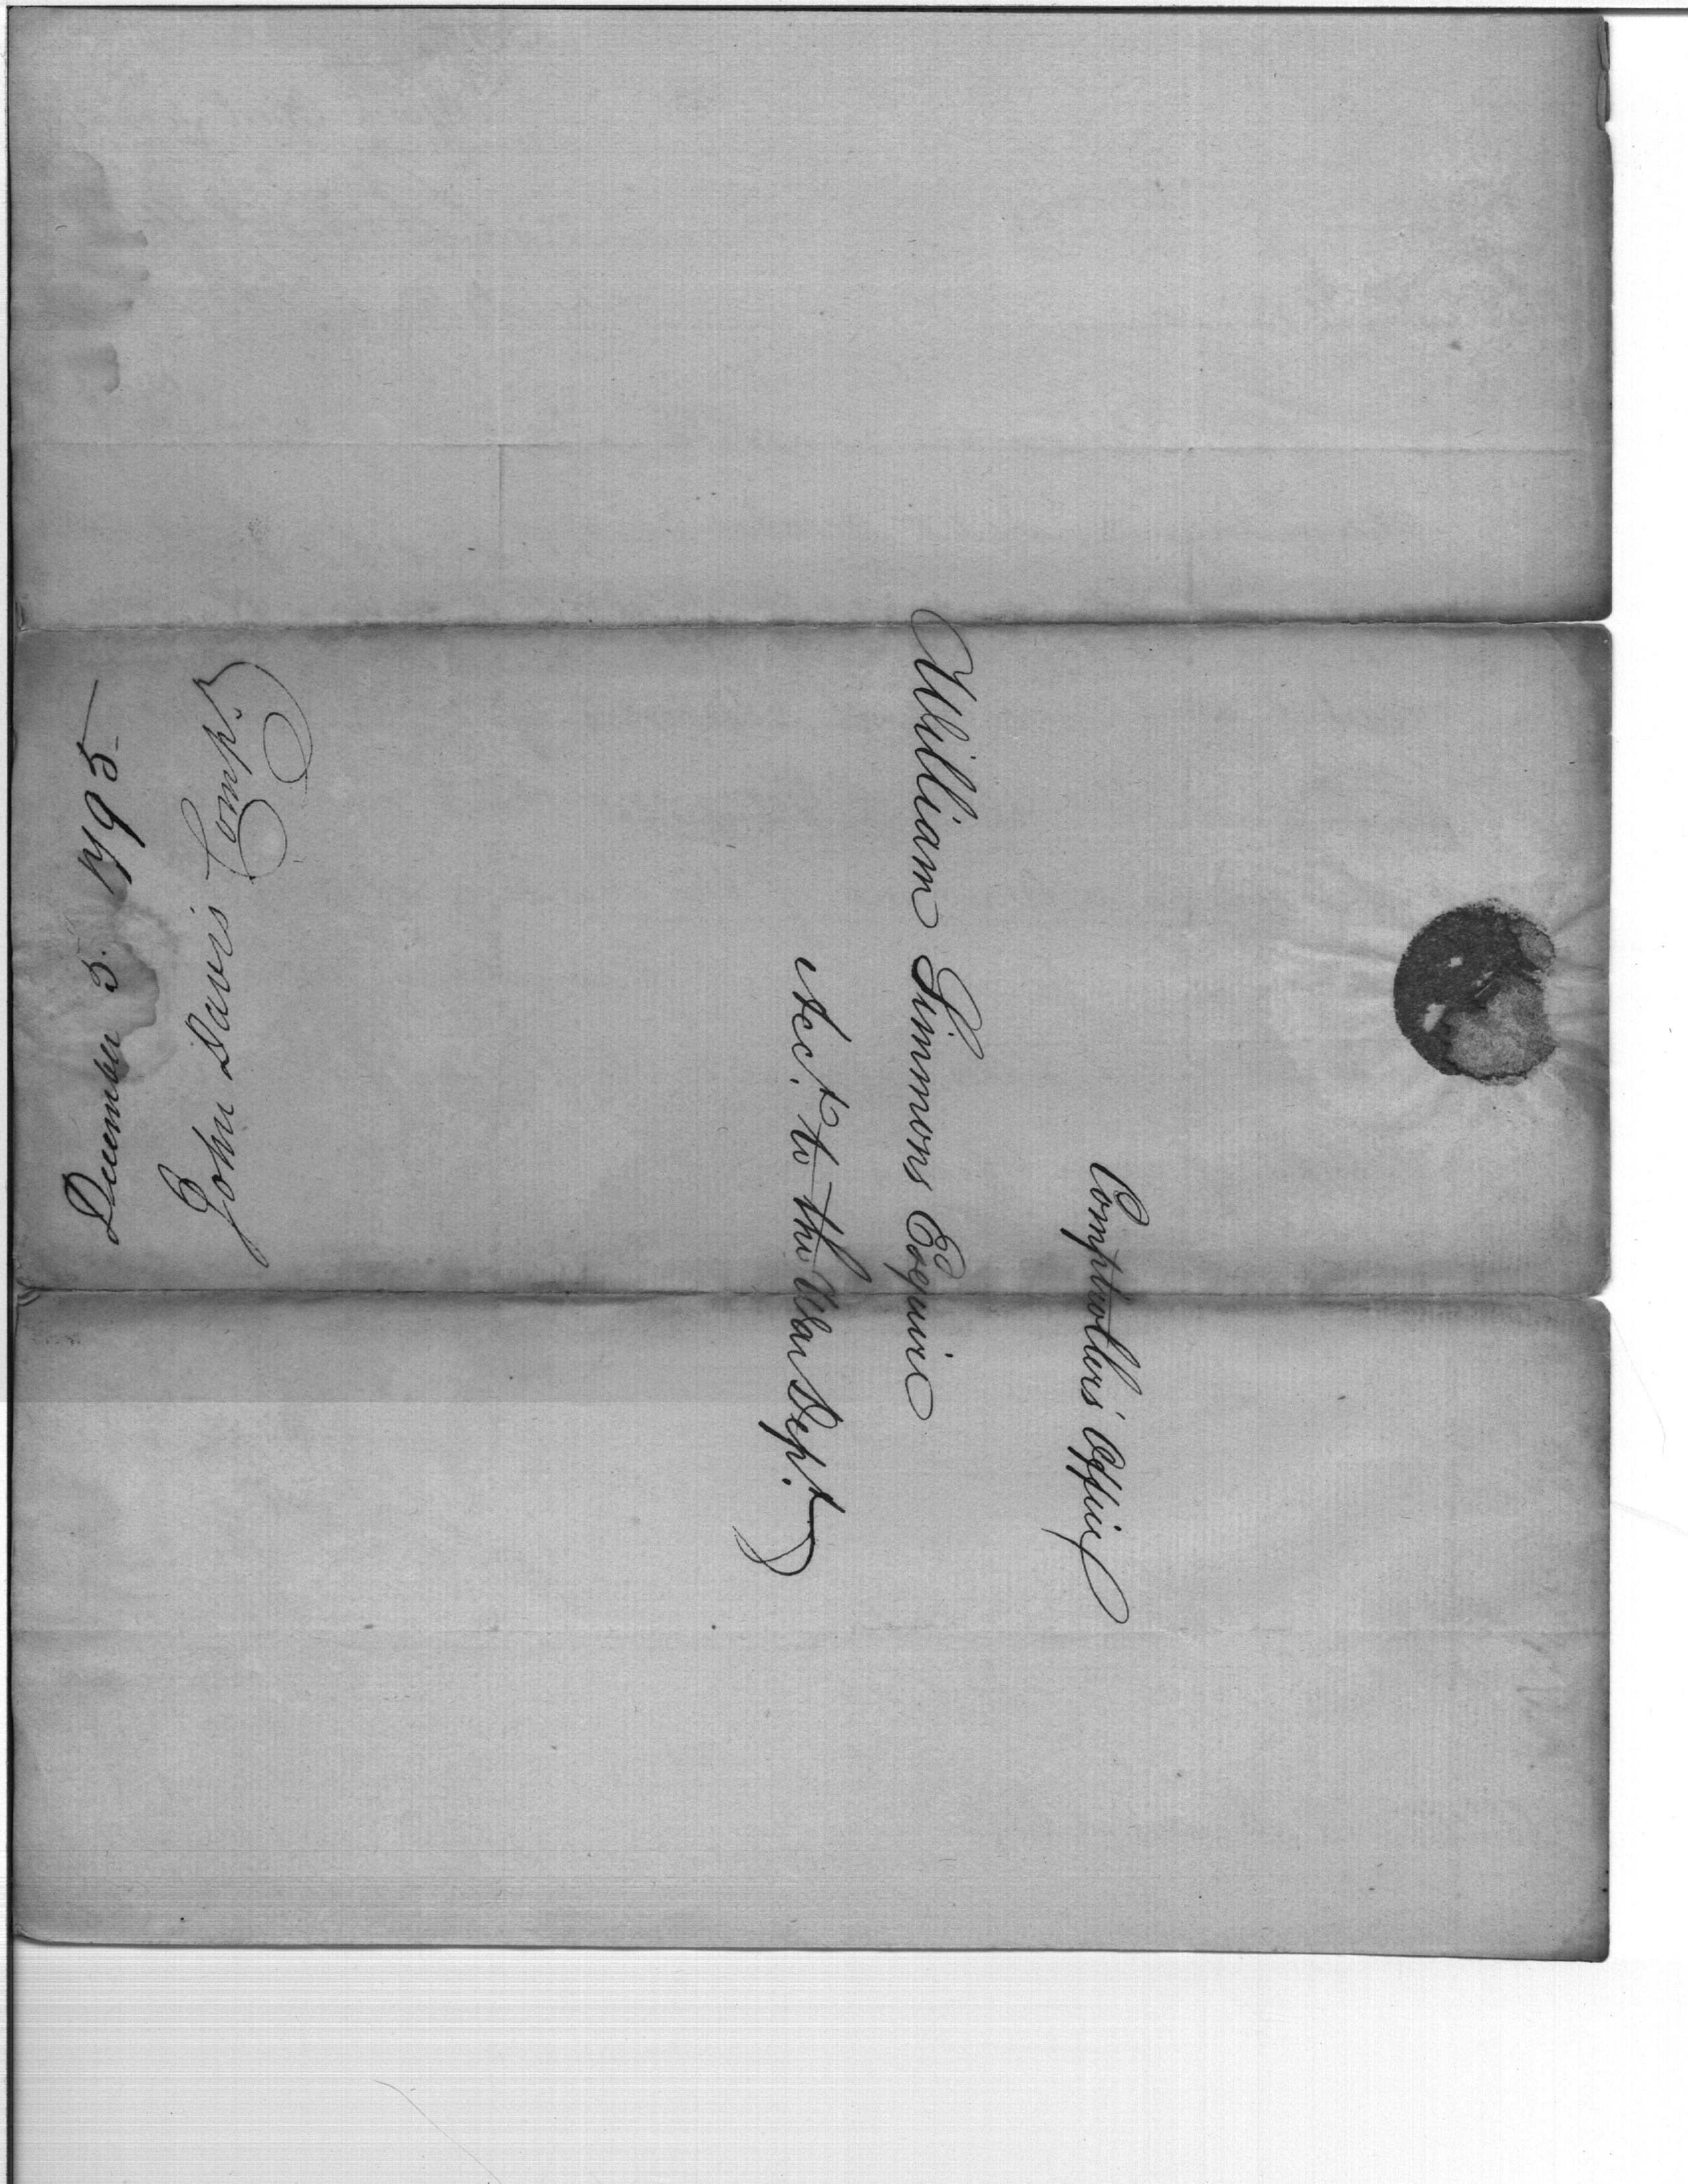 Comptrollers' Office
William Simmons Esquire
Acct. to the War Dept.
December 5. 1795
John Davis Compr.